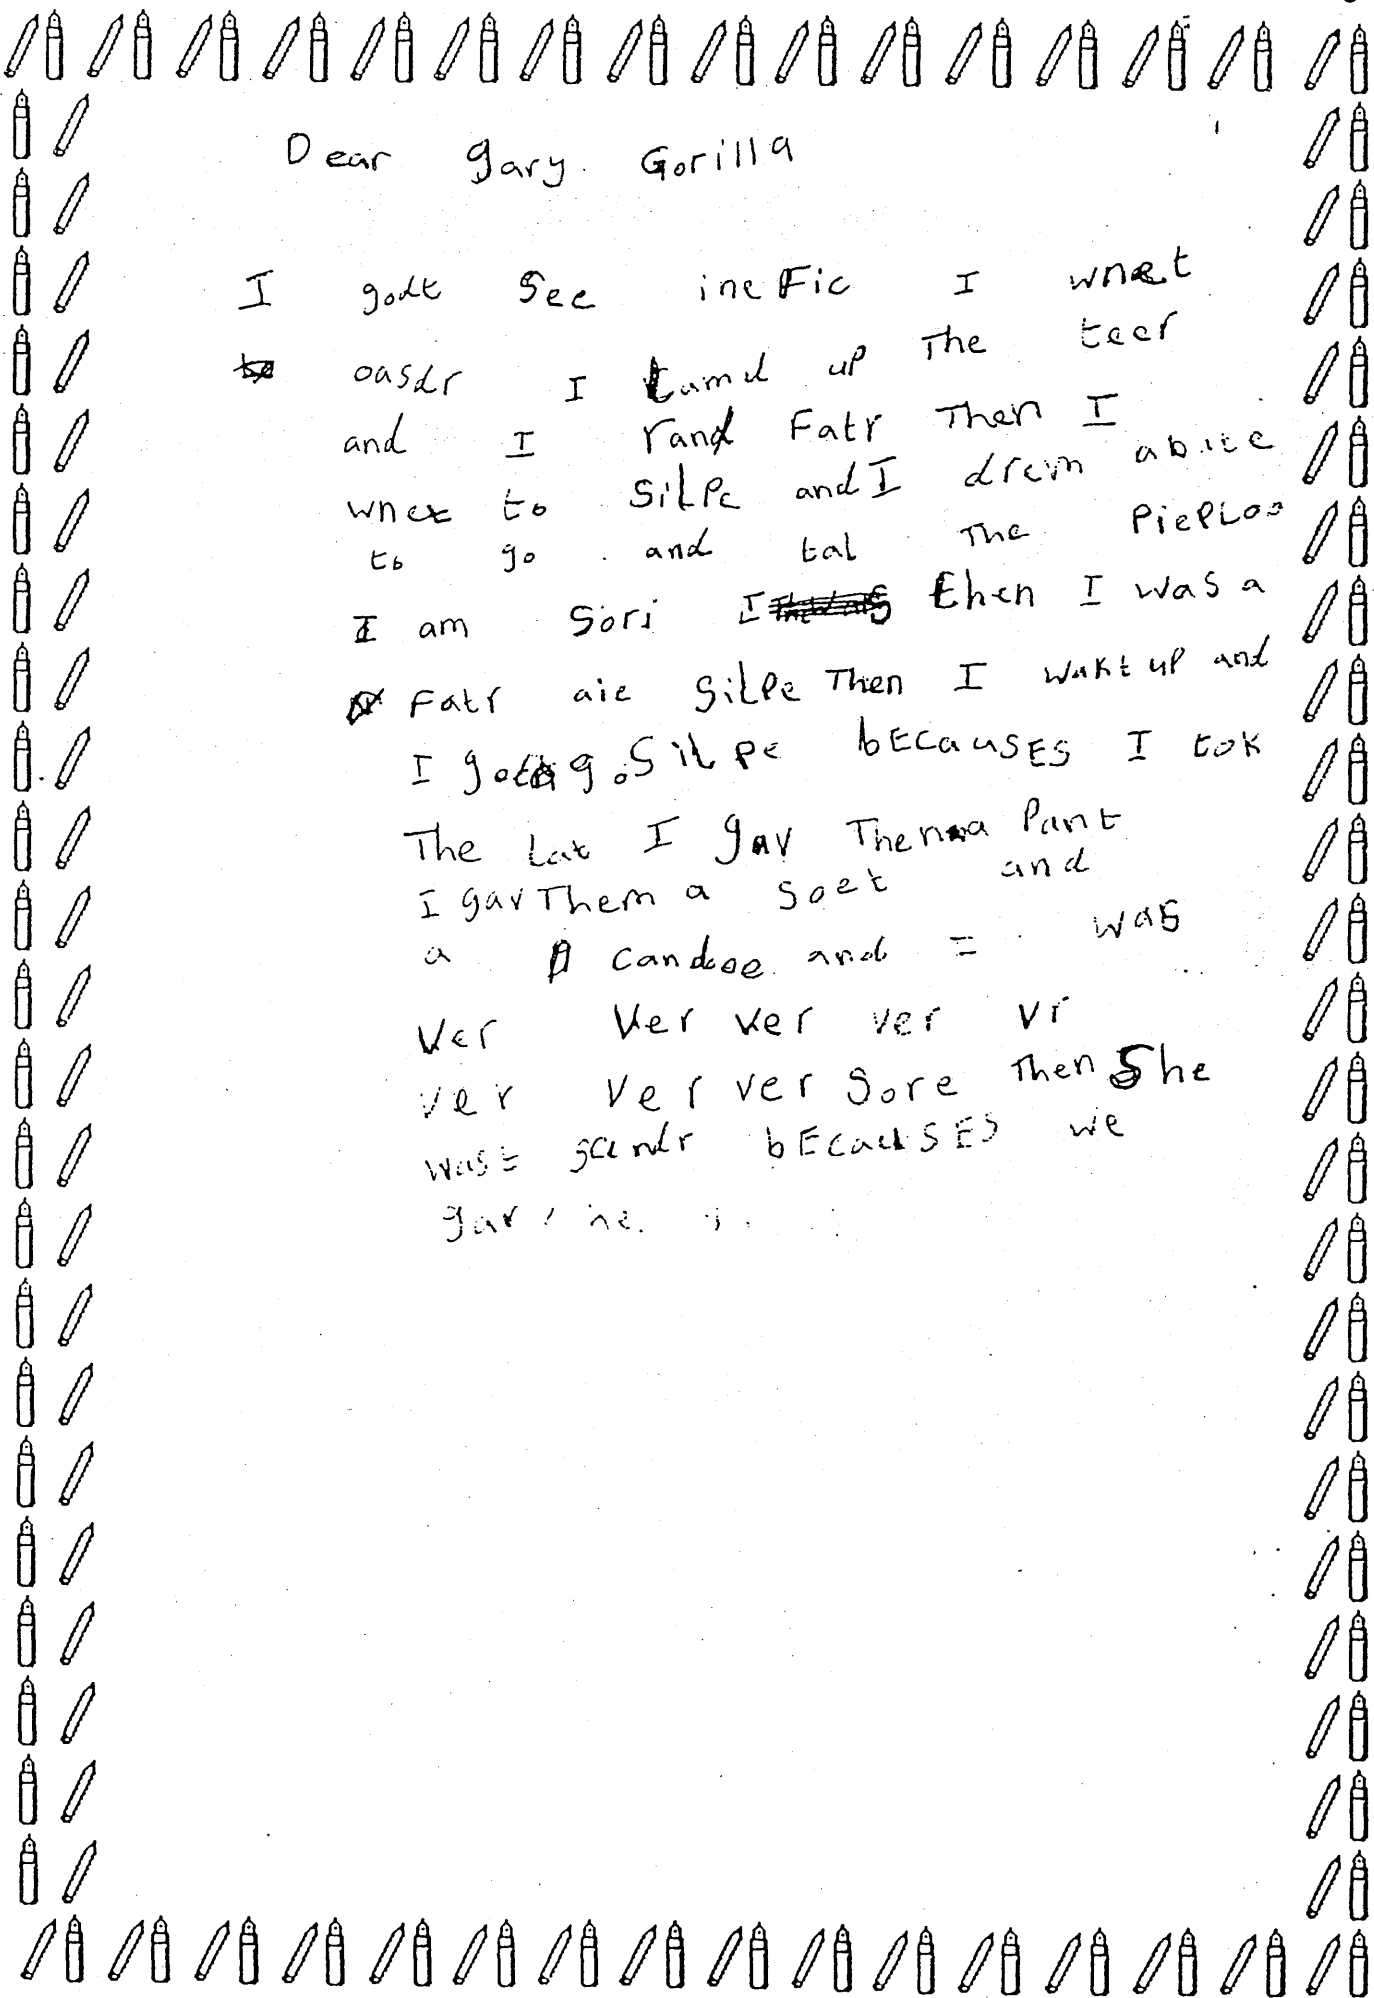 Dear gary Gorilla
I godt See ineFic I wnet
oasdr I tamd up The teer
and I rand Fatr Then I
wnet to SilPe and I drem abite
to go and tal The PiePLoo
I am Sori I then I was a
Fatr aie SilPe Then I wakt up and
I go SilPe bECauSES I tok
The Lat I gav Them a Pant
I gav Them a Soet and
a candoe and I was
Ver Ver ver ver vr
ver Ver ver Sore Then She
wast bECauSES we
gav